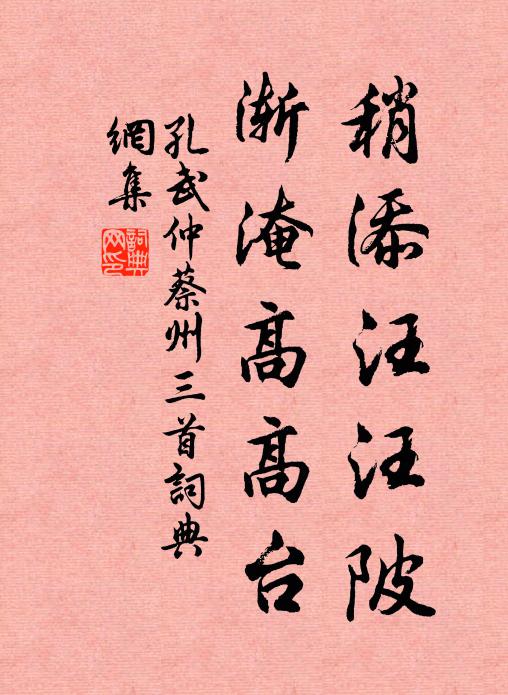 稍添汪汪陂
渐淹高高台
孔武仲蔡州三首詞典
網集
詞典網印